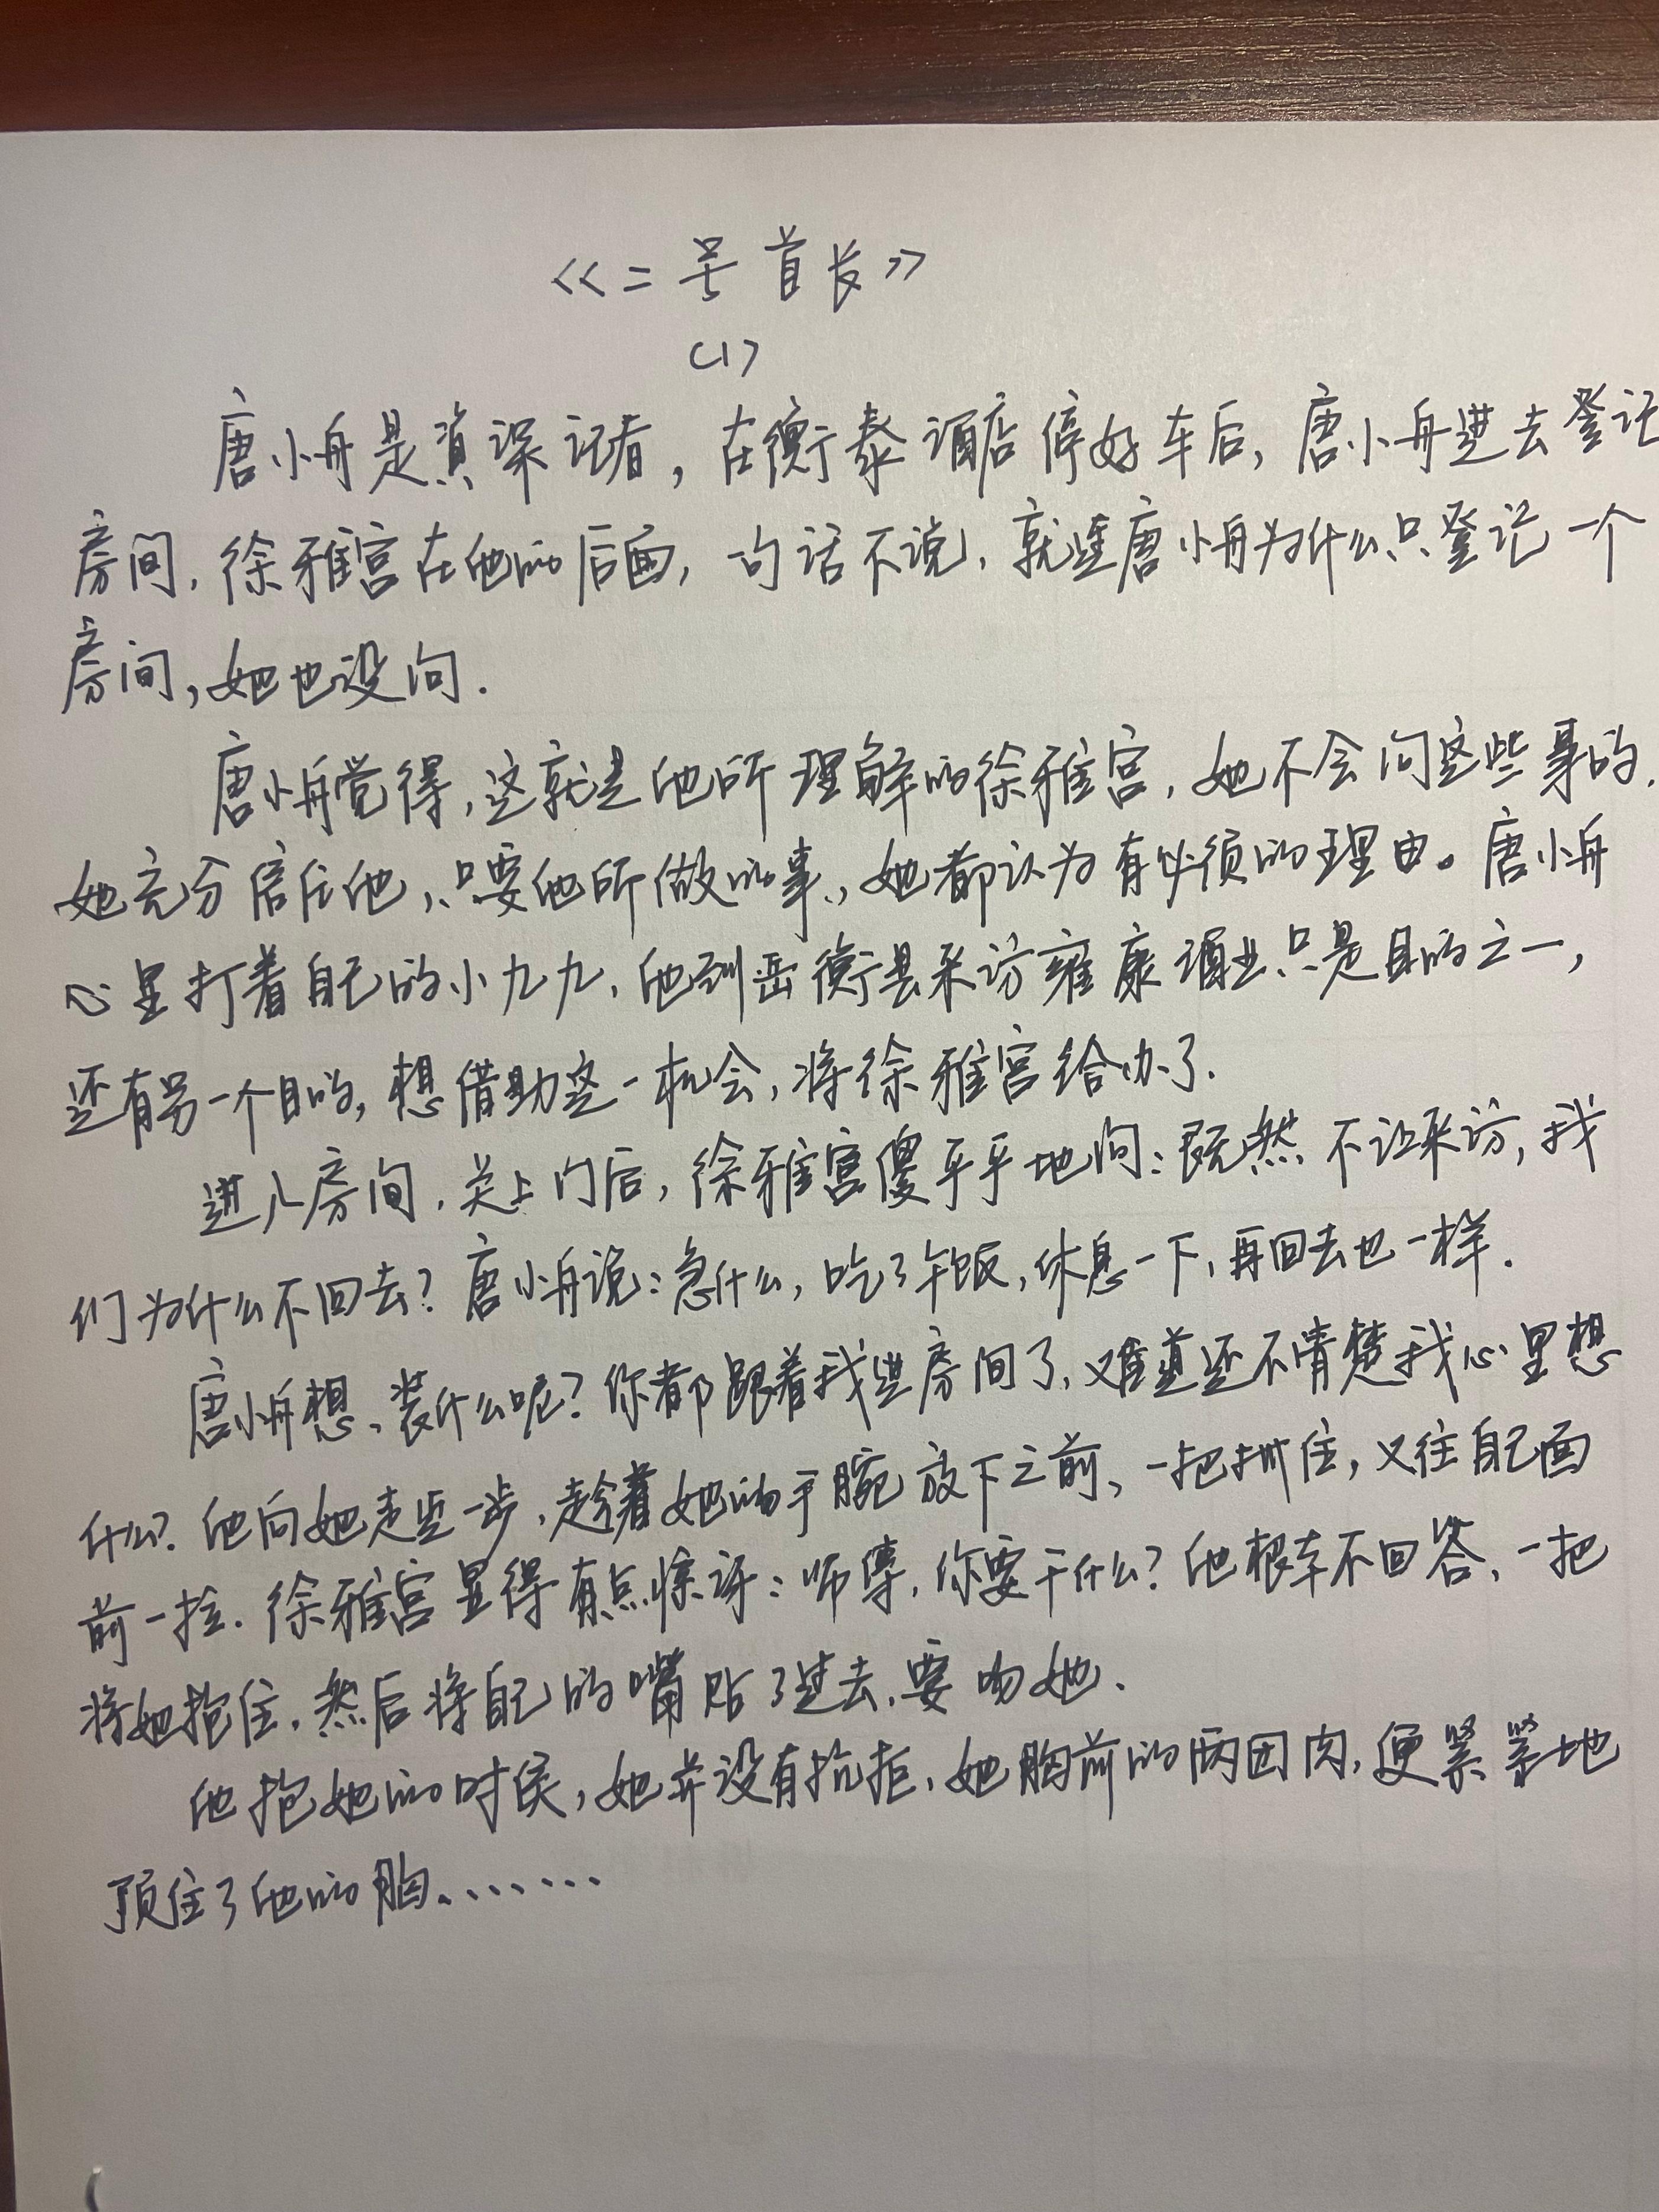 《二号首长》
(1)
唐小舟是资深记者，在衡泰酒店停好车后，唐小舟进去登记
房间，徐雅宫在他的后面，一句话不说，就连唐小舟为什么只登记一个
房间，她也没问．
唐小舟觉得，这就是他所理解的徐雅宫，她不会问这些事的．
她充分信任他，只要他所做的事，她都认为有必须的理由。唐小舟
心里打着自己的小九九，他到岳衡县采访雍康酒业只是目的之一，
还有另一个目的，想借助这一机会，将徐雅宫给办了．
进入房间，关上门后，徐雅宫傻乎乎地问：既然不让采访，我
们为什么不回去？唐小舟说：急什么，吃了午饭，休息一下，再回去也一样．
唐小舟想、装什么呢？你都跟着我进房间了，难道还不清楚我心里想
什么？他向她走近一步，趁着她的手腕放下之前、一把抓住，又往自己面
前一拉．徐雅宫显得有点惊讶：师傅，你要干什么？他根本不回答、一把
将她抱住，然后将自己的嘴贴了过去，要吻她．
他抱她的时侯，她并没有抗拒，她胸前的两团肉，便紧紧地
顶住了他的胸．．．．．．．